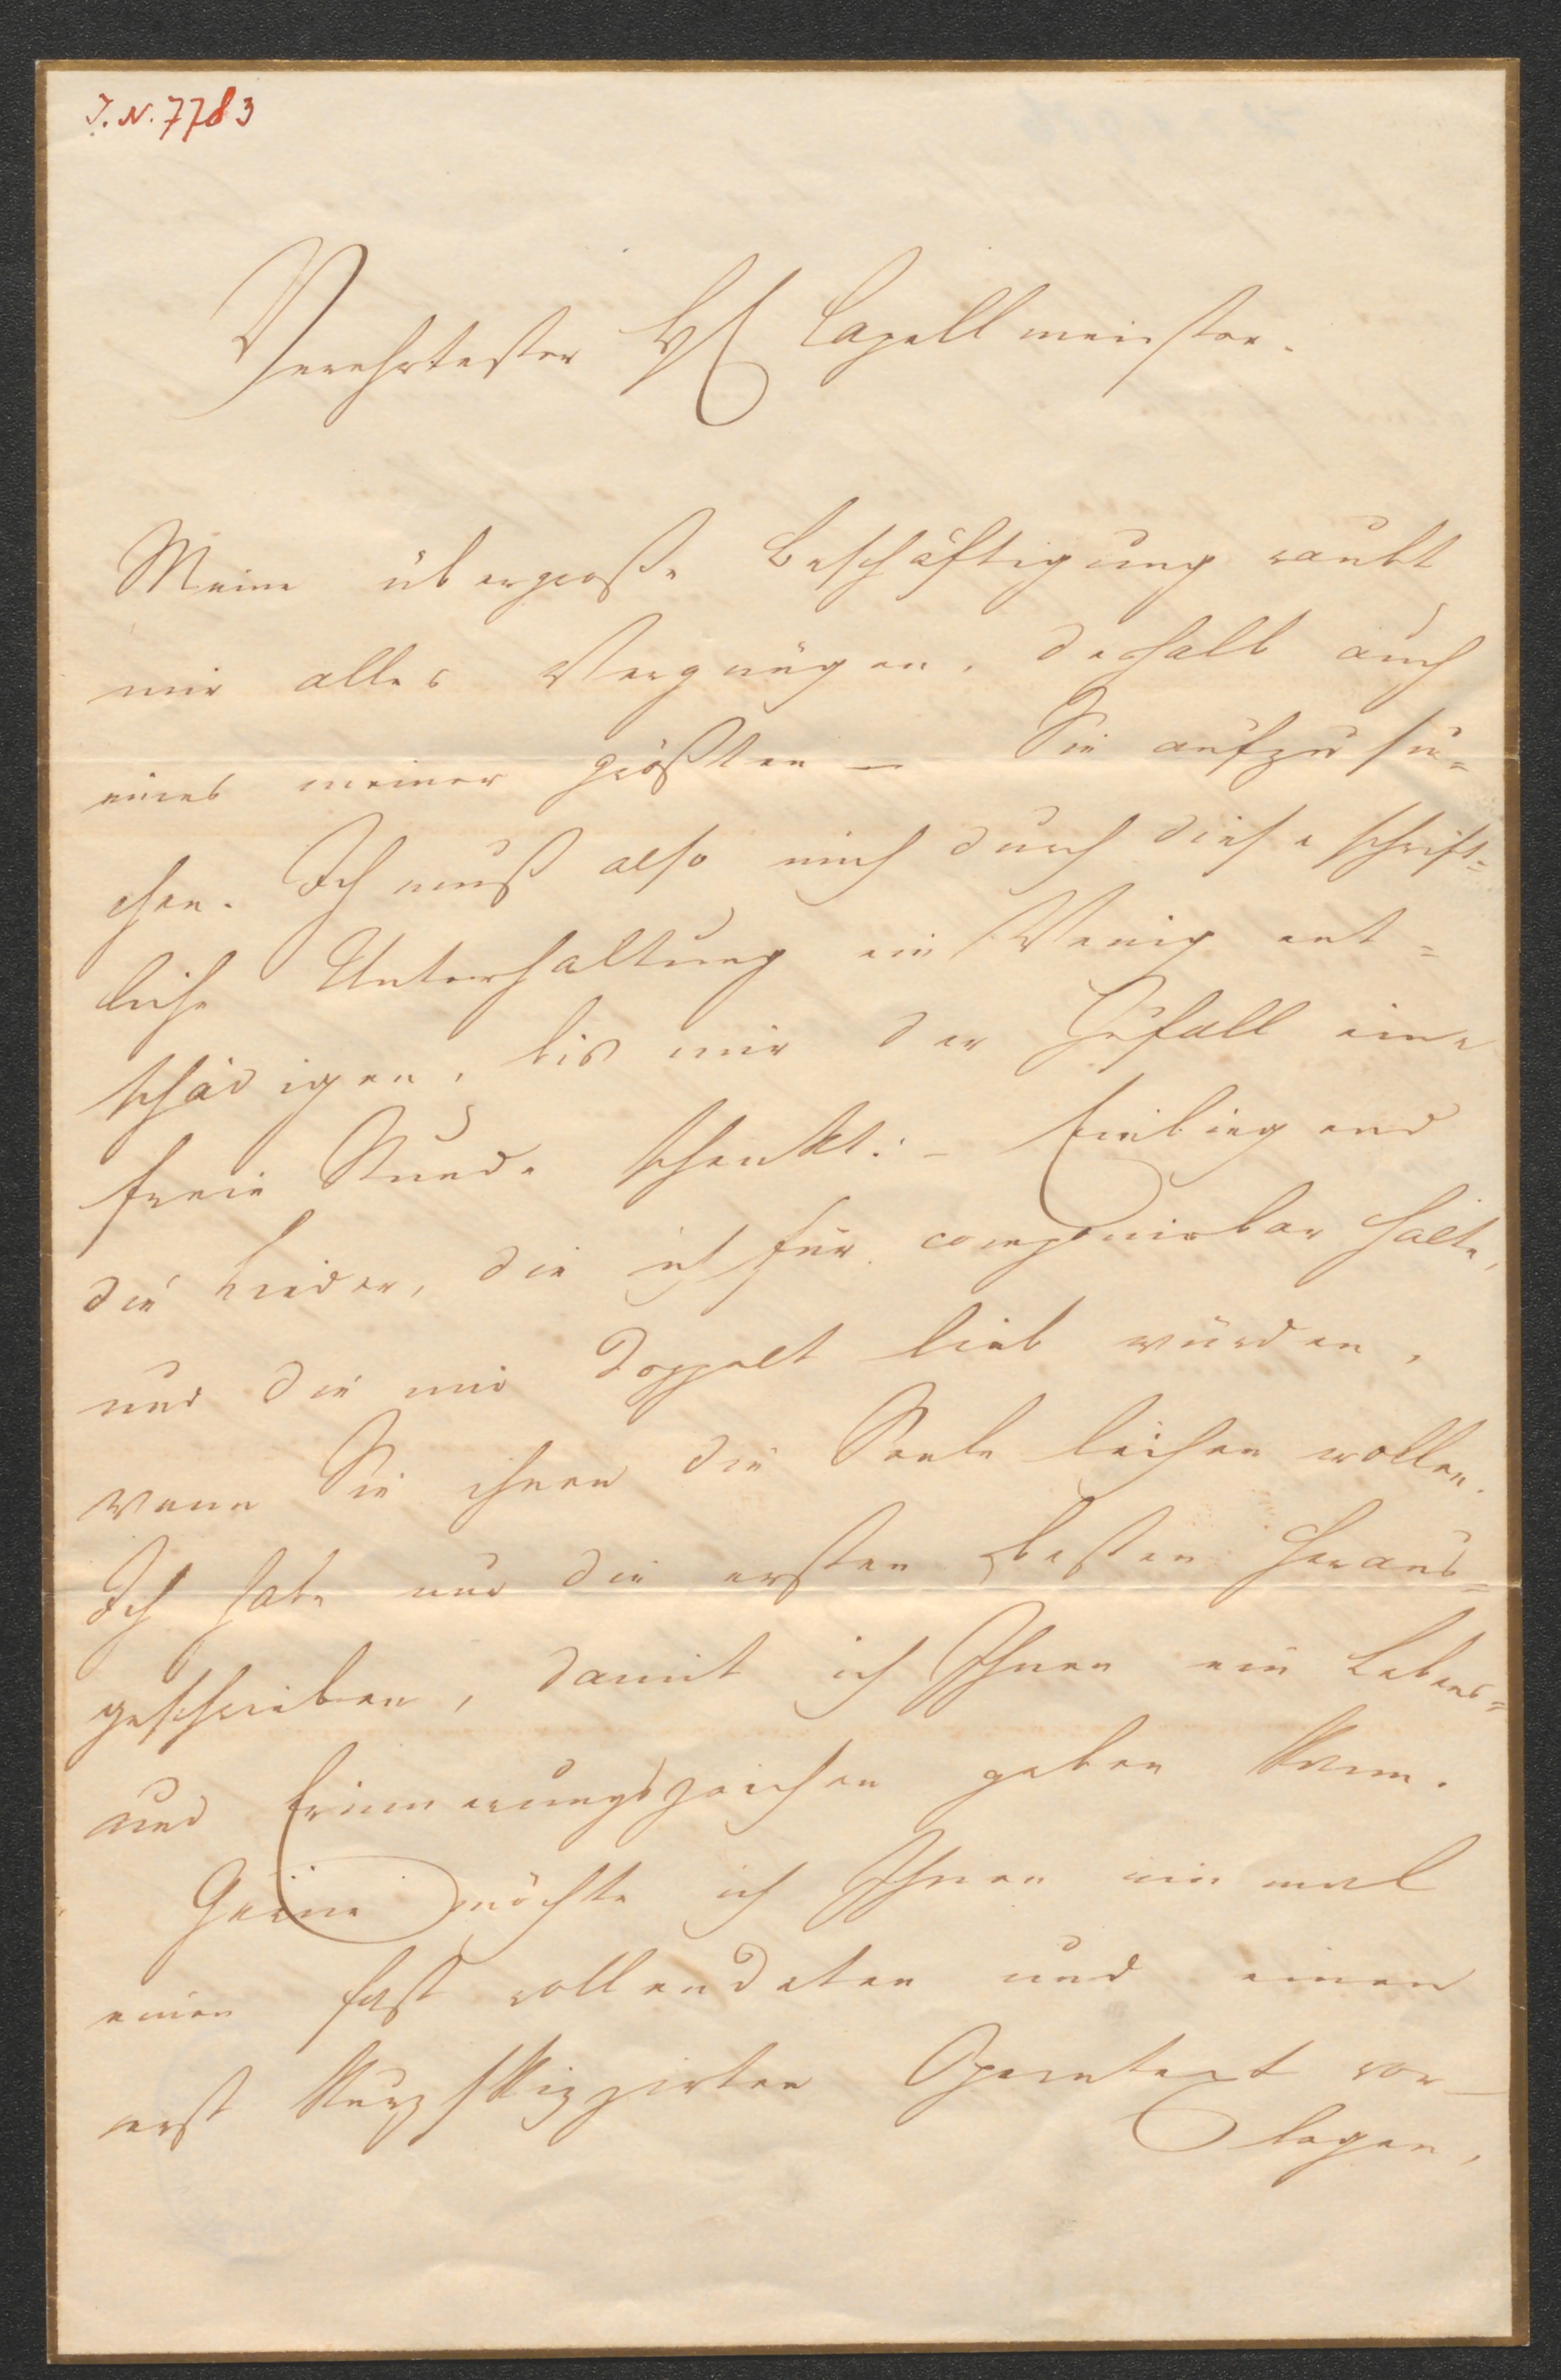 J. N. 7783
Verehrtester H Capellmeister.
Meine übergroße Beschäftigung raubt
mir alles Vergnügen, deshalb auch
eines meiner größten — Sie aufzusu=
chen. Ich muß also mich durch diese schrift=
liche Unterhaltung ein Wenig ent=
schädigen, bis mir der Zufall eine
freie Stunde schenkt: – Einliegend
die Lieder, die ich für componirbar halte,
und die mir doppelt lieb würden,
wenn Sie ihnen die Seele leihen wollen.
Ich habe nur die ersten besten heraus=
geschrieben, damit ich Ihnen ein Lebens=
und Erinnerungszeichen geben kann.
Gerne möchte ich Ihnen einmal
einen fast vollendeten und einen
erst kurz skizzirten Operntext vor–
legen,